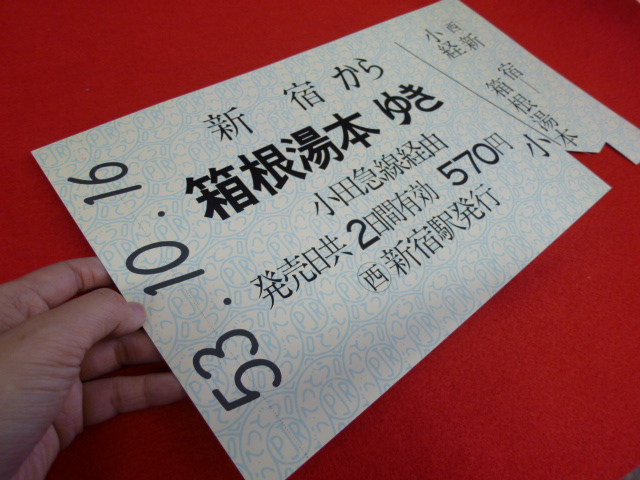 53.10.16
新宿から
箱根湯本ゆき
小田急線経由
発売日共2日間有効 570円
㊄新宿駅発行
小
西
新宿
経
箱根湯本